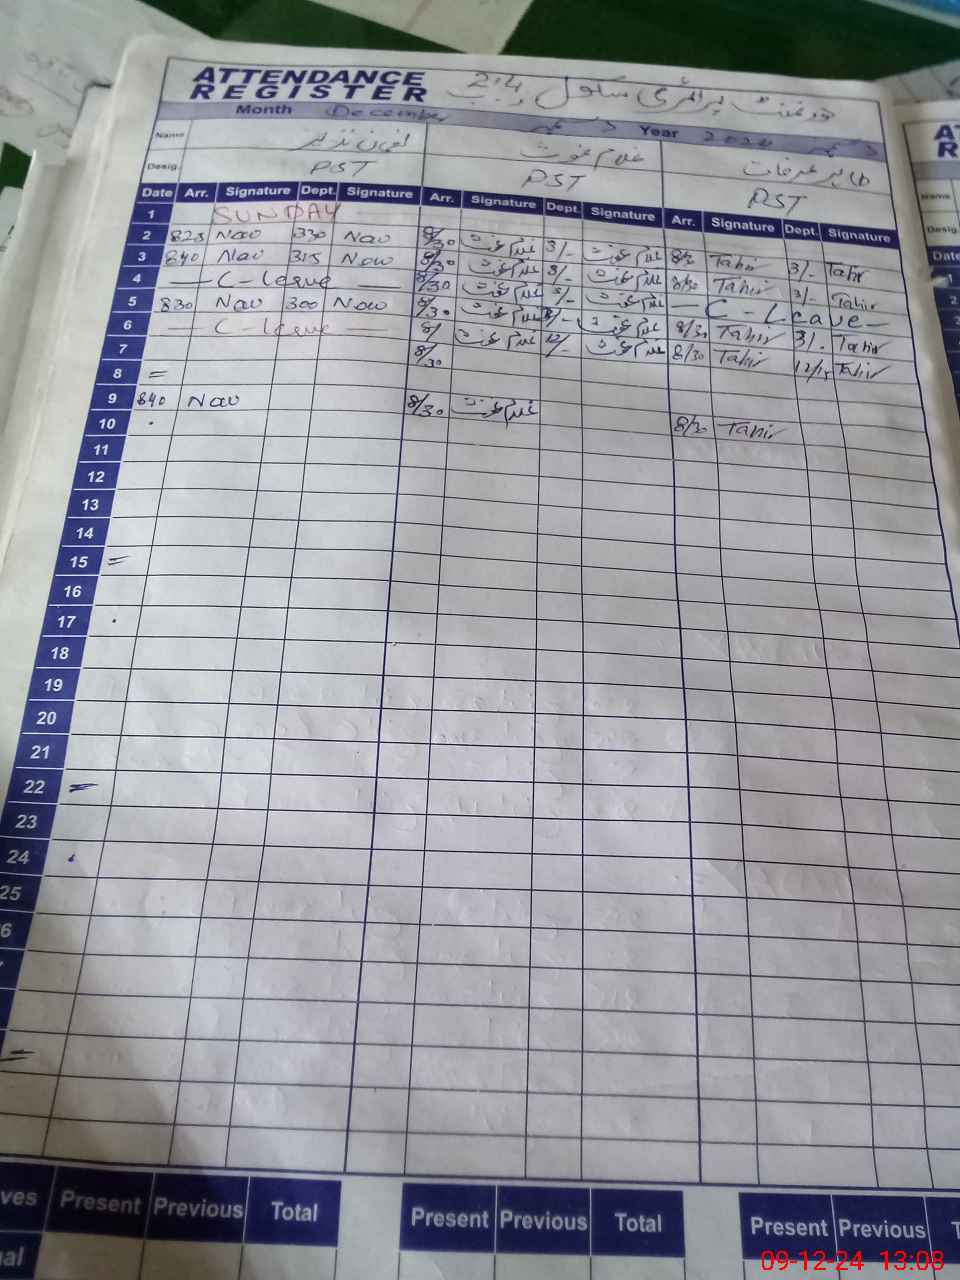 ATTENDANCE
REGISTER
گورنمنٹ پرائمری سکول
Month December دسمبر Year 2024 دسمبر
Name غلام غوث طاہر عرفات
Desig. PST PST PST
Date Arr. Signature Dept. Signature Arr. Signature Dept. Signature Arr. Signature Dept. Signature
1 SUNDAY
2 823 Nav 330 Nav 8/30 غلام غوث 3/- غلام غوث Tahir 3/- Tahir
3 840 Nav 315 Nav 8/30 غلام غوث 3/- غلام غوث 8/30 Tahir 3/- Tahir
4 — C-leave — 8/30 غلام غوث 3/- غلام غوث — C-Leave —
5 830 Nav 300 Nav 8/30 غلام غوث غلام غوث 8/30 Tahir 3/- Tahir
6 — C-leave — 8/30 غلام غوث 12/- غلام غوث 8/30 Tahir 12/15 Tahir
7
8 =
9 840 Nav 8/30 غلام غوث 8/30 Tahir
10
11
12
13
14
15 =
16
17
18
19
20
21
22 =
23
24
25
6
=
ves Present Previous Total Present Previous Total Present Previous
09-12-24 13:08